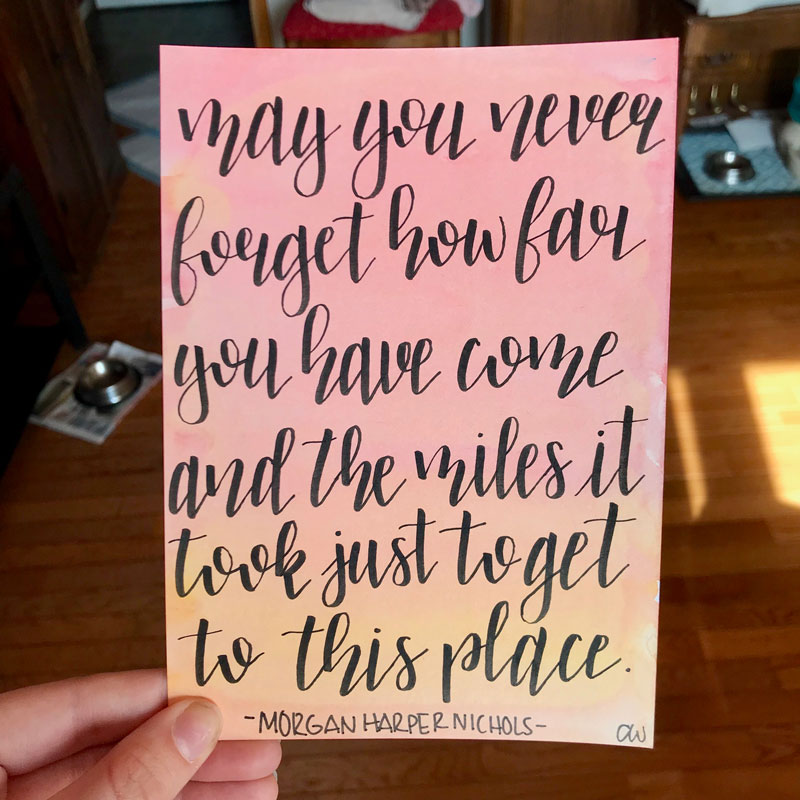 may you never
forget how far
you have come
and the miles it
took just to get
to this place.
-MORGAN HARPER NICHOLS-